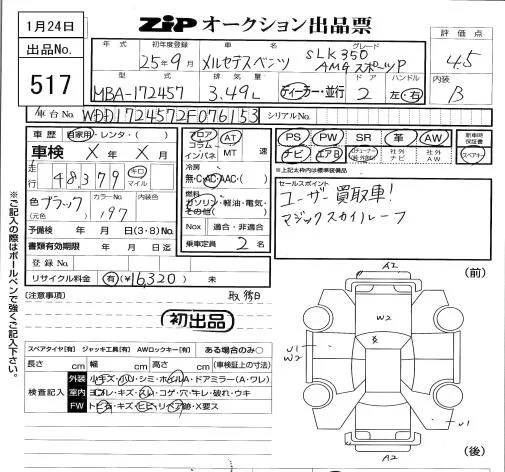 1月24日
ZiP オークション出品票
評価点
4.5
出品No.
517
年式
初年度登録
25年9月
車名
メルセデスベンツ
グレード
SLK350
AMG スポーツP
内装
B
型式
MBA-172457
排気量
3.49L
ディーラー・並行
ドア
2
ハンドル
左・右
車台No.
WDD1724572F076153
シリアルNo.
車歴 自家用・レンタ・( )
車検 X年 X月
走行
48,379
キロ
マイル
色 ブラック
(元色)
カラーNo.
197
内装色
予備検 年 月 日(3・8)No.
書類有効期限 年 月 日迄
登録No.
リサイクル料金 有(¥16,320) 未
フロア
コラム
インパネ
AT
MT
速
冷房
無・C・AC・AAC・( )
燃料
ガソリン・軽油・電気・
その他( )
Nox 適合・非適合
乗車定員 2 名
PS PW SR 革 AW
新車時保証書
ナビ エアB
社外ナビ
社外AW
スペアキー
※上記太枠内は標準装備品
セールスポイント
ユーザー買取車!
マジックスカイルーフ
※ご記入の際はボールペンで強くご記入下さい。
(注意事項)
初出品
スペアタイヤ[有] ジャッキ工具[有] AWロックキー[有] ある場合のみ〇
長さ cm 幅 cm 高さ cm (車検証上の寸法)
検査記入
外装 小キズ・小凹・シミ・ホイルA・ドアミラー(A・ワレ)
室内 ヨゴレ・キズ・スレ・コゲ・穴・キレ・破れ・ウキ
FW トビ石・キズ・ヒビ・リペア跡・X要ス
(前)
A2
W2
U1
W2
U1
A2
(後)